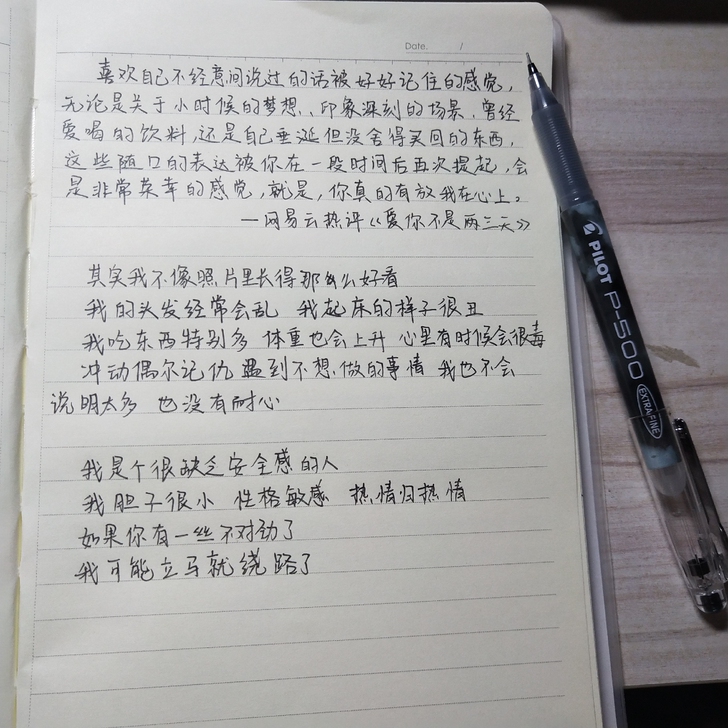 Date. /
喜欢自己不经意间说过的话被好好记住的感觉,
无论是关于小时候的梦想、印象深刻的场景、曾经
爱喝的饮料,还是自己垂涎但没舍得买回的东西,
这些随口的表达被你在一段时间后再次提起,会
是非常荣幸的感觉,就是,你真的有放我在心上。
—网易云热评《爱你不是两三天》
其实我不像照片里长得那么好看
我的头发经常会乱 我起床的样子很丑
我吃东西特别多 体重也会上升 心里有时候会很毒
冲动偶尔记仇 遇到不想做的事情 我也不会
说明太多 也没有耐心
我是个很缺乏安全感的人
我胆子很小 性格敏感 热情归热情
如果你有一丝不对劲了
我可能立马就绕路了
PILOT P-500 EXTRA FINE